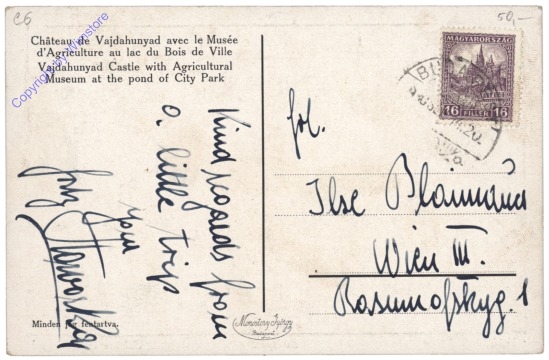 C6
50,-
Château de Vajdahunyad avec le Musée
d'Agriculture au lac du Bois de Ville
Vajdahunyad Castle with Agricultural
Museum at the pond of City Park
Copyright by Wienstore
MAGYARORSZÁG
16 FILLÉR 16
Kind regards from
a little trip
your
Frl.
Ilse
Wien III.
Rasumofskyg. 1
Minden jog fentartva.
Monostory György
Budapest